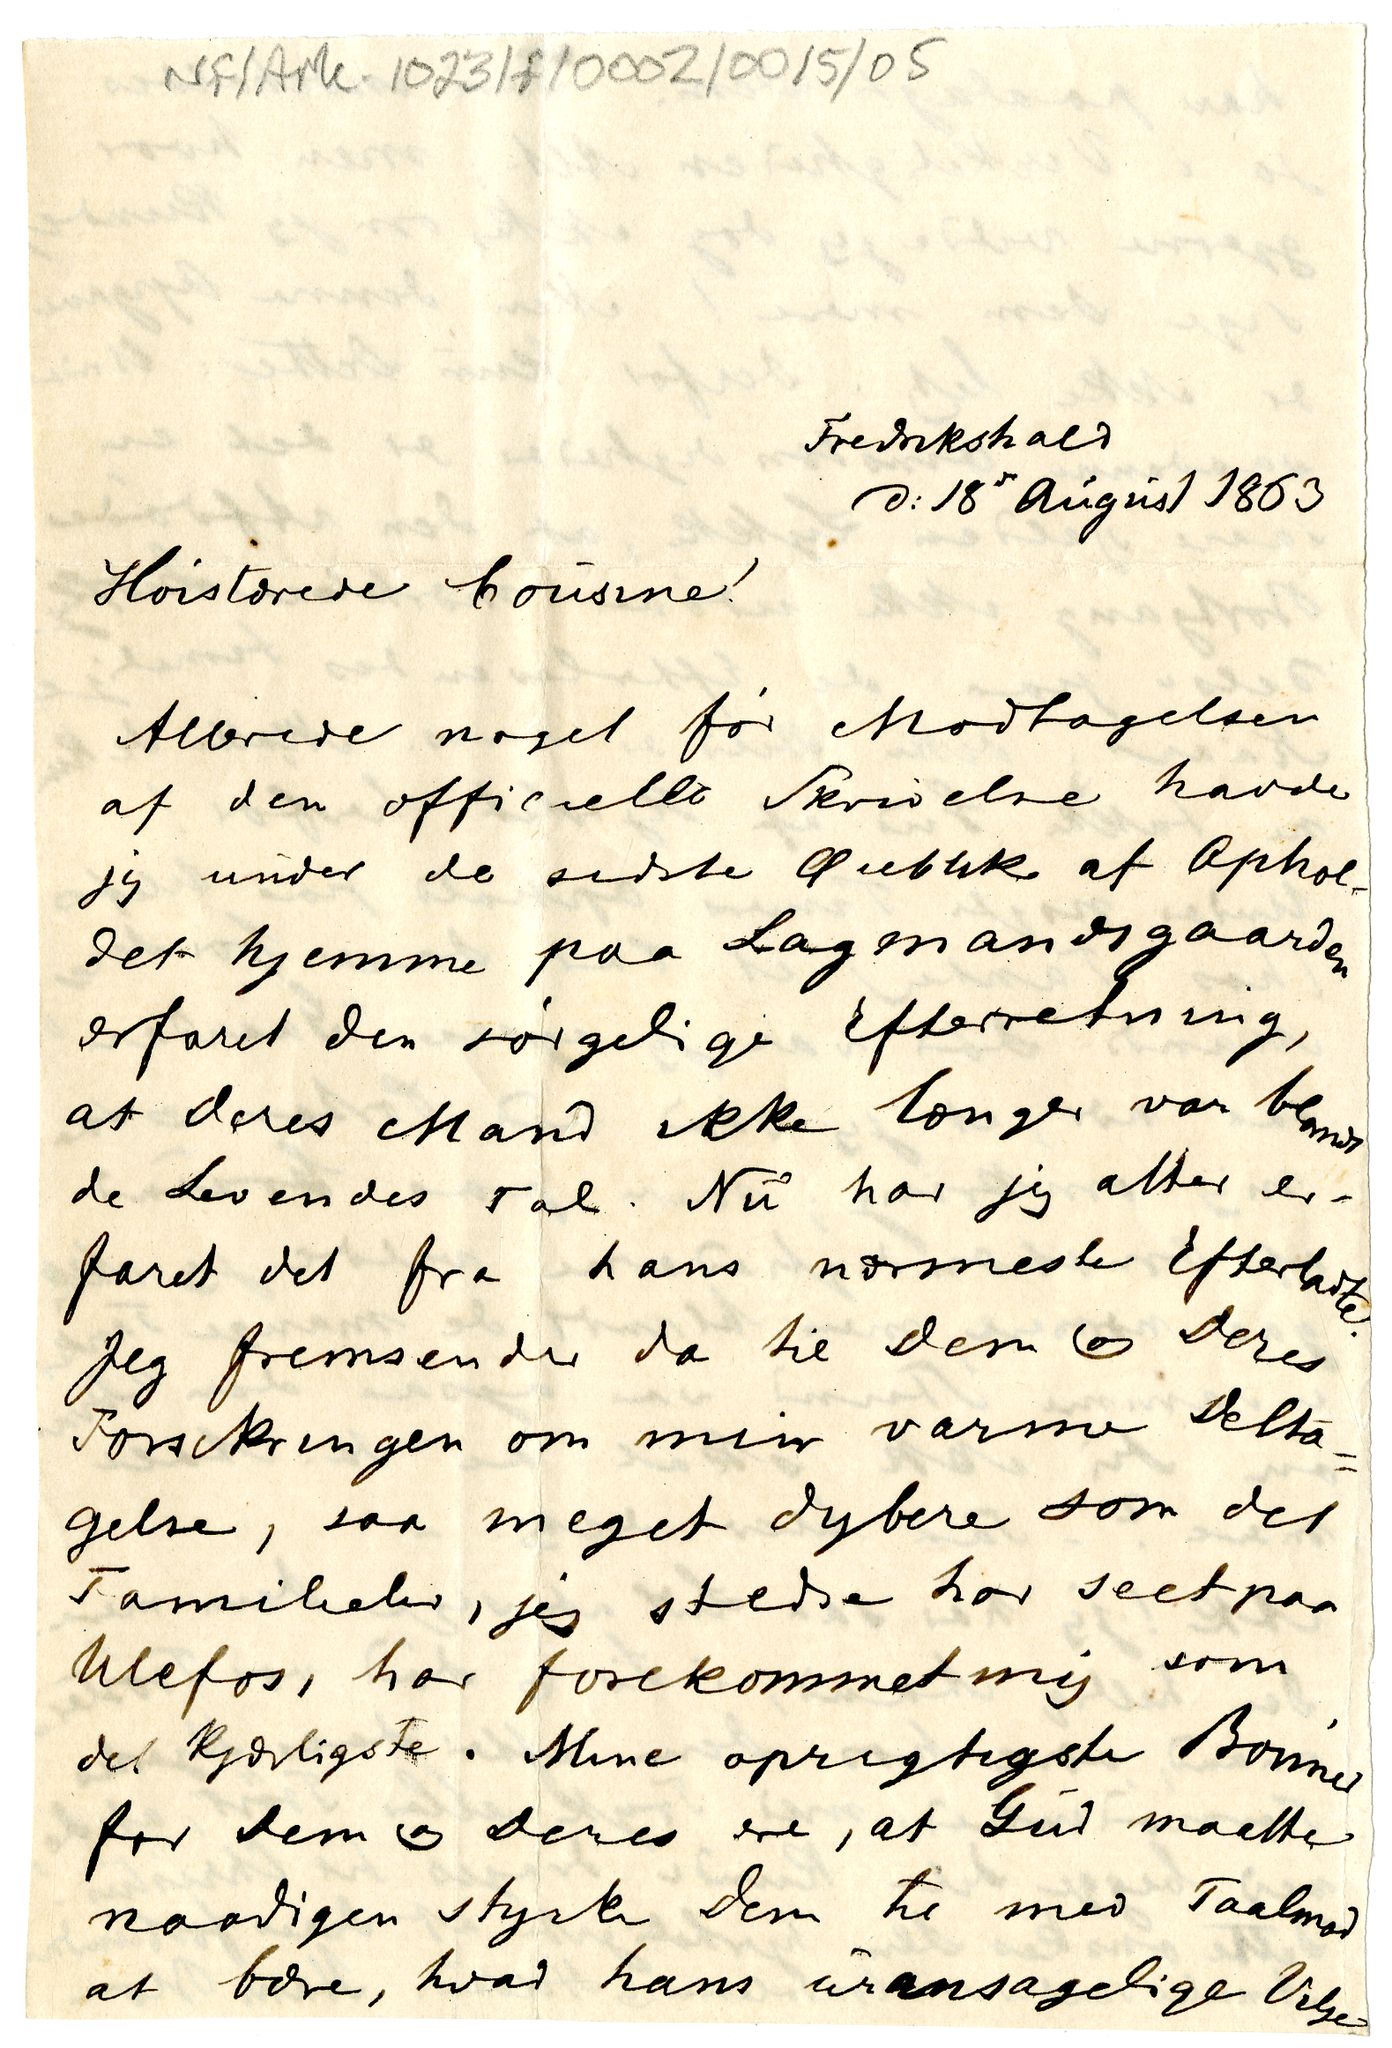 NF/Ark. 1023/f/0002/0015/05
Fredrikshald
d: 18de August 1863
Høistærede Cousine!
Allerede noget før Modtagelsen
af den officielle Skrivelse havde
jeg under de sidste Øieblikke af Ophol-
det hjemme paa Lagmandsgaarden
erfaret den sørgelige Efterretning,
at Deres Mand ikke længer var blandt
de Levendes Tal. Nu har jeg atter er-
faret det fra hans nærmeste Efterladte.
Jeg fremsender da til Dem og Deres
Forsikringen om min varme Delta=
gelse, saa meget dybere som det
Familieliv, jeg stedse har seet paa
Ulefos, har forekommet mig som
det kjærligste. Mine oprigtigste Bønner
for Dem og Deres ere, at Gud maatte
naadigen styrke Dem til med Taalmod
at bære, hvad hans uransagelige Vilje